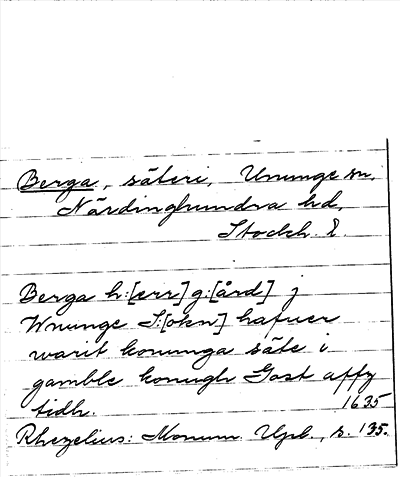 Berga, säteri, Ununge sn,
Närdinghundra hd,
Stockh. l.
Berga h:[err]g:[ård] j
Wnunge S:[okn] hafuer
warit konunga säte i
gamble konugh Gost affy
tidh. 1635
Rhezelius: Monum. Upl., s. 135.